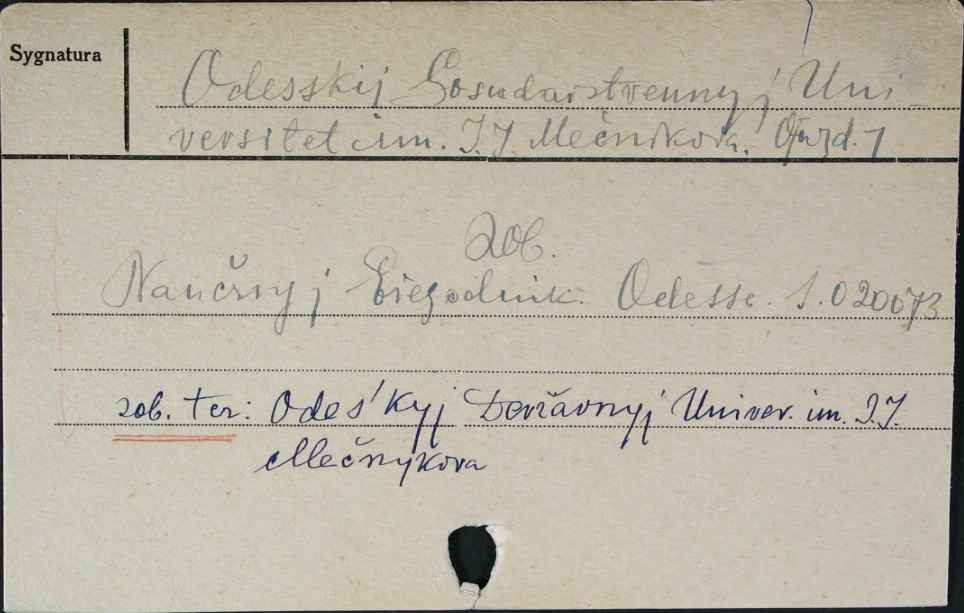 Sygnatura
Odesskij Gosudarstvennyj Uni-
versitet im. I.I. Mečnikova.
zob.
Naučnyj Ežegodnik. Odessa. S.020073
zob. też: Odes'kyj Deržavnyj Univer. im. I.I.
Mečnykova